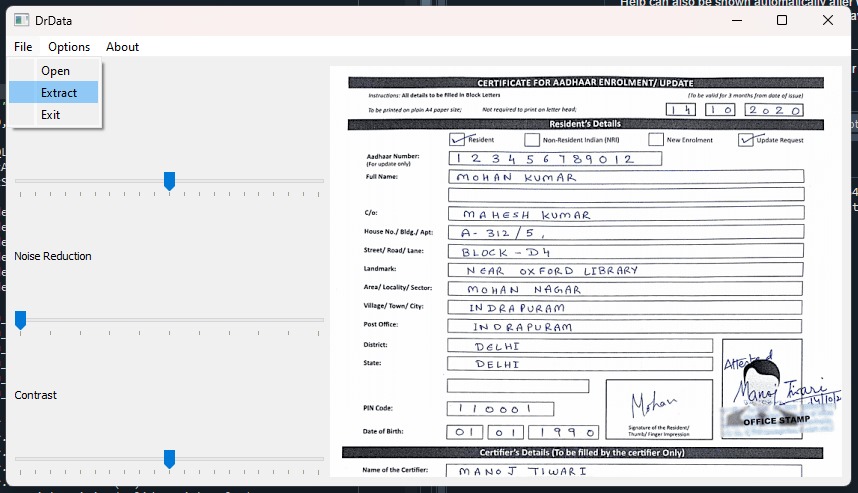 Help can also be shown automatically after
DrData
File Options About
Open
Extract
Exit
Noise Reduction
Contrast
CERTIFICATE FOR AADHAAR ENROLMENT/ UPDATE
Instructions: All details to be filled in Block Letters (To be valid for 3 months from date of issue)
To be printed on plain A4 paper size; Not required to print on letter head; 14 10 2020
Resident's Details
Resident Non-Resident Indian (NRI) New Enrolment Update Request
Aadhaar Number: 1 2 3 4 5 6 7 8 9 0 1 2
(For update only)
Full Name: MOHAN KUMAR
C/o: MAHESH KUMAR
House No./ Bldg./ Apt: A- 312/5,
Street/ Road/ Lane: BLOCK - D4
Landmark: NEAR OXFORD LIBRARY
Area/ Locality/ Sector: MOHAN NAGAR
Village/ Town/ City: INDRAPURAM
Post Office: INDRAPURAM
District: DELHI
State: DELHI
Attested
Manoj Tiwari
14/10/2
OFFICE STAMP
Mohan
Signature of the Resident/
Thumb/ Finger Impression
PIN Code: 110001
Date of Birth: 01 01 1990
Certifier's Details (To be filled by the certifier Only)
Name of the Certifier: MANOJ TIWARI